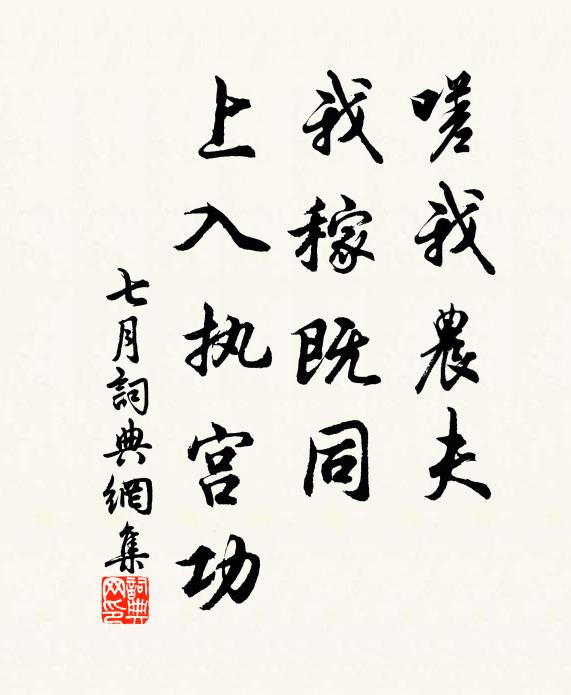 嗟我農夫
我稼既同
上入执宫功
七月詞典網集
詞典
网印